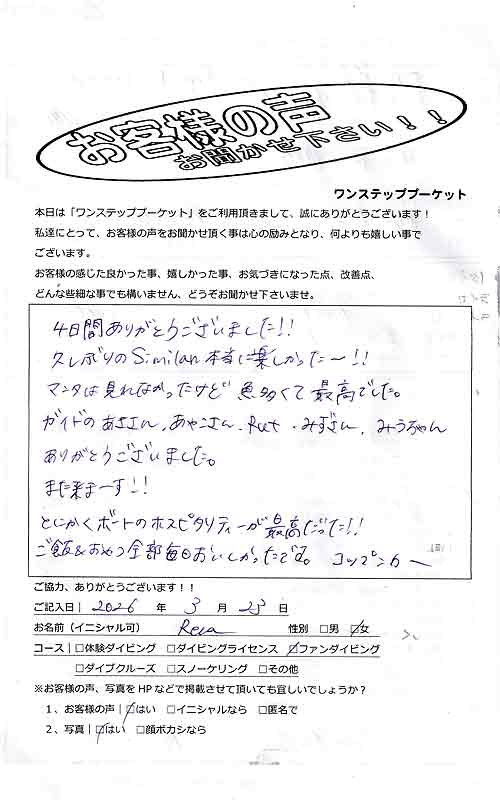 お客様の声
お聞かせ下さい！！
ワンステッププーケット
本日は「ワンステッププーケット」をご利用頂きまして、誠にありがとうございます！
私達にとって、お客様の声をお聞かせ頂く事は心の励みとなり、何よりも嬉しい事で
ございます。
お客様の感じた良かった事、嬉しかった事、お気づきになった点、改善点、
どんな些細な事でも構いません、どうぞお聞かせ下さいませ。
4日間ありがとうございました!!
久しぶりのSimilan本当に楽しかったー!!
マンタは見れなかったけど魚多くて最高でした。
ガイドのあささん、あやこさん、Rut、みずきさん、みうちゃん
ありがとうございました。
また来まーす!!
とにかくボートのホスピタリティーが最高だった!!
ご飯&おやつ全部毎日おいしかったです。コップンカー
ご協力、ありがとうございます！！
ご記入日| 2026 年 3 月 23 日
お名前（イニシャル可） Rena 性別 □男 ☑女
コース| □体験ダイビング □ダイビングライセンス ☑ファンダイビング
□ダイブクルーズ □スノーケリング □その他
※お客様の声、写真をHPなどで掲載させて頂いても宜しいでしょうか？
1、お客様の声| ☑はい □イニシャルなら □匿名で
2、写真| ☑はい □顔ボカシなら